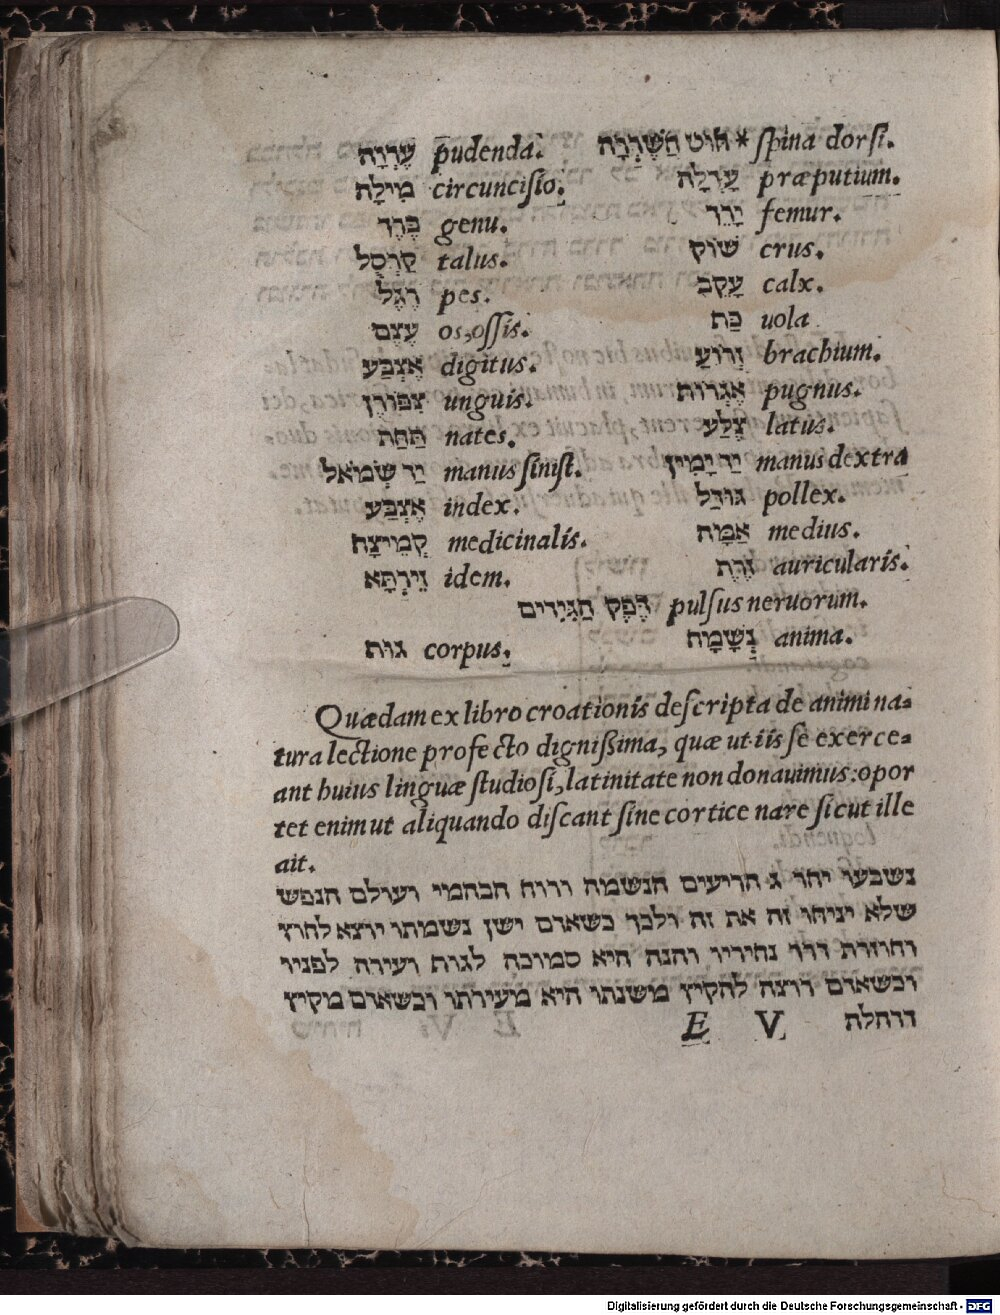 חוט הַשֶּׁדְרָה * spina dorsi. עֶרְוָה pudenda.
עָרְלָה præputium. מִילָה circuncisio.
יָרֵךְ femur. בֶּרֶךְ genu.
שׁוֹק crus. קַרְסֻל talus.
עָקֵב calx. רֶגֶל pes.
כַּף uola עֶצֶם os, ossis.
זְרוֹעַ brachium. אֶצְבַּע digitus.
אֶגְרוֹף pugnus. צִפּוֹרֶן unguis.
צֶלַע latus. תַּחַת nates.
יַד יָמִין manus dextra יַד שְׂמֹאל manus sinist.
גּוּדַל pollex. אֶצְבַּע index.
אַמָּה medius. קְמֵיצָה medicinalis.
זֶרֶת auricularis. זֵירְתָּא idem.
דֶּפֶק הַגִּידִים pulsus neruorum.
נְשָׁמָה anima. גוּף corpus.
Quædam ex libro croationis descripta de animi na-
tura lectione profecto dignißima, quæ ut iis se exerce-
ant huius linguæ studiosi, latinitate non donauimus: opor
tet enim ut aliquando discant sine cortice nare sicut ille
ait.
נשבעו יחד ג הריעים הנשמה ורוח הבהמי ועולם הנפש
שלא יניחו זה את זה ולכך כשאדם ישן נשמתו יוצא לחוץ
וחוזרת דרך נחיריו והנה היא סמוכה לגוף ועירה לפניו
וכשאדם רוצה להקיץ משנתו היא מעירתו וכשאדם מקיץ
E V דוחלה
Digitalisierung gefördert durch die Deutsche Forschungsgemeinschaft - DFG